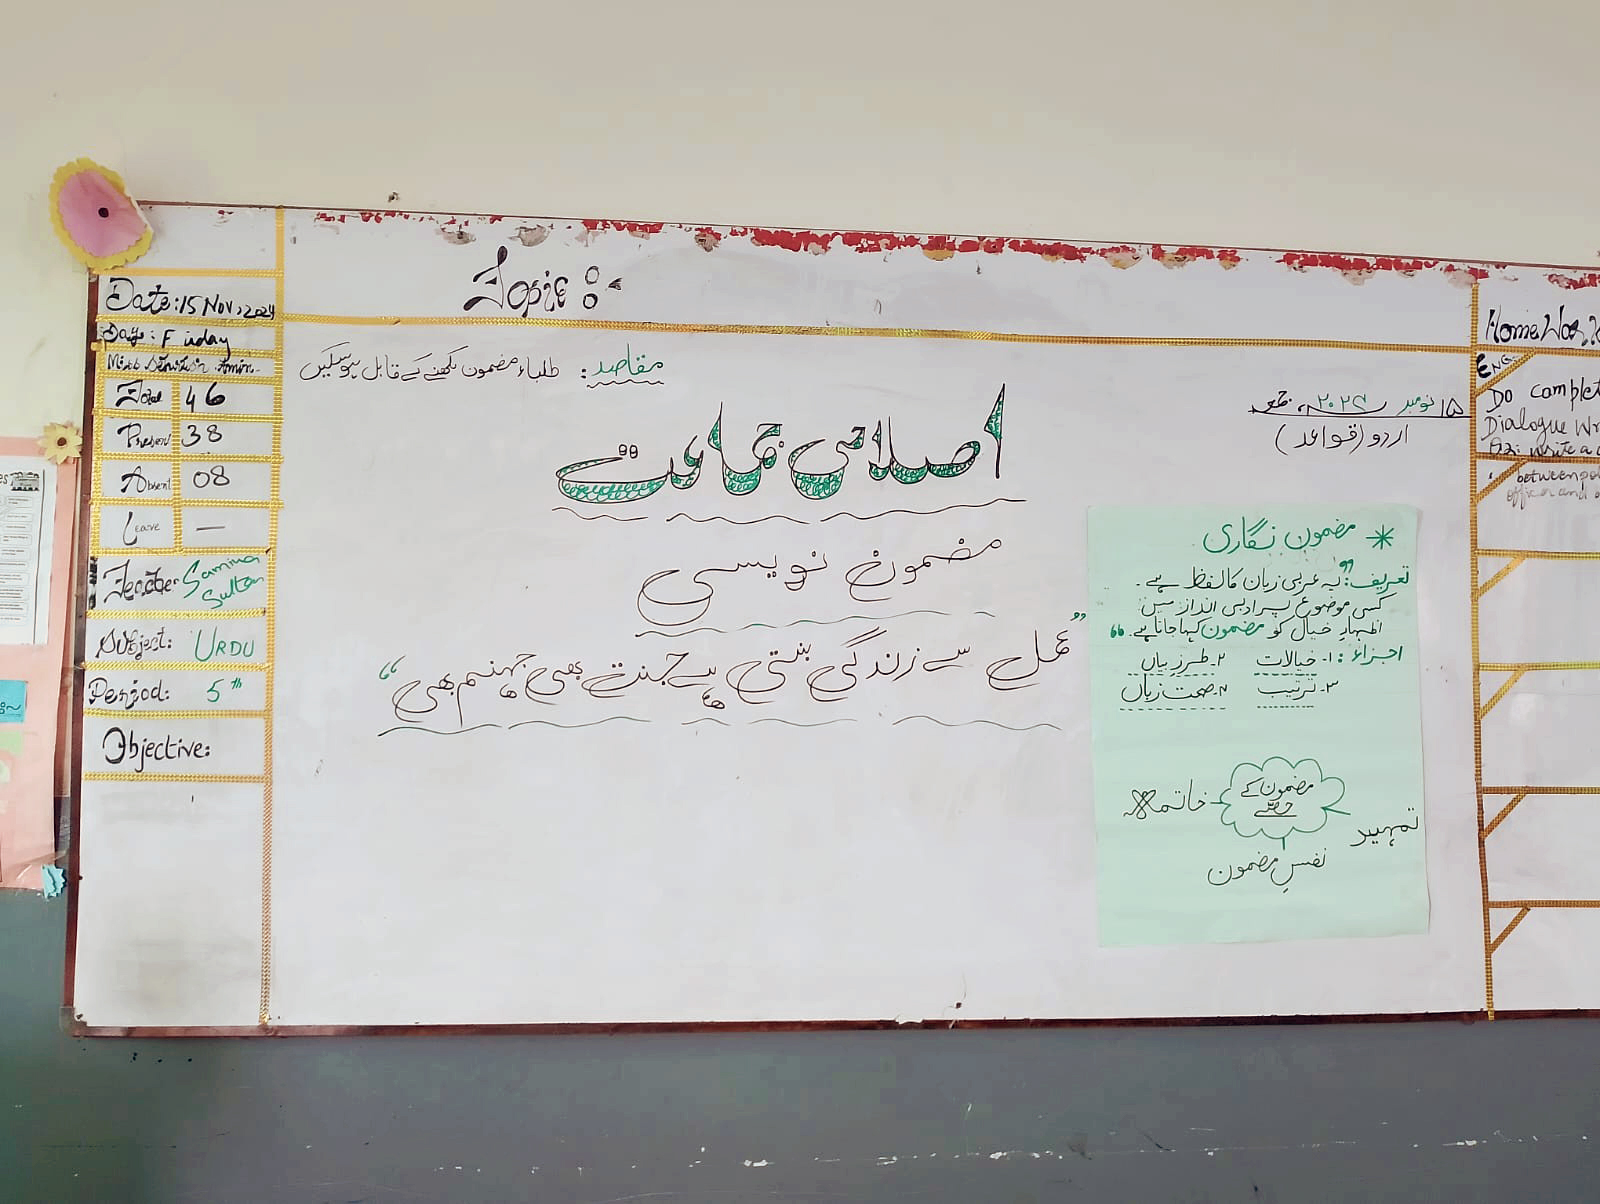 Topic :-
Date: 15 Nov, 2024
Day: Friday
Total 46
Present 38
Absent 08
Leave —
Teacher Samina Sultan
Subject: URDU
Period: 5th
Objective:
مقاصد: طلباء مضمون لکھنے کے قابل ہو سکیں
۱۵ نومبر ۲۰۲۴ء جمعہ
اردو (قواعد)
اصلاحی جماعت
مضمون نویسی
"عمل سے زندگی بنتی ہے جنت بھی جہنم بھی"
* مضمون نگاری
تعریف: "یہ عربی زبان کا لفظ ہے۔
کسی موضوع پر ادبی انداز میں
اظہارِ خیال کو مضمون کہا جاتا ہے۔"
اجزاء: ۱۔ خیالات ۲۔ طرزِ بیاں
۳۔ ترتیب ۴۔ صحت زباں
مضمون کے
حصّے
تمہید
نفسِ مضمون
خاتمہ
Home Work
ENG
Do complet
Dialogue Wr
Q2: write a
between
officer and